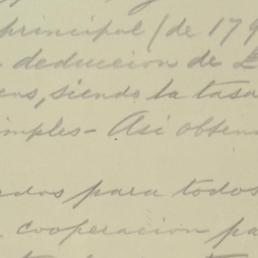 principal (de 179
deduccion de £
ens, siendo la tasa
imples - Asi obten
rdos para todos
cooperacion pa